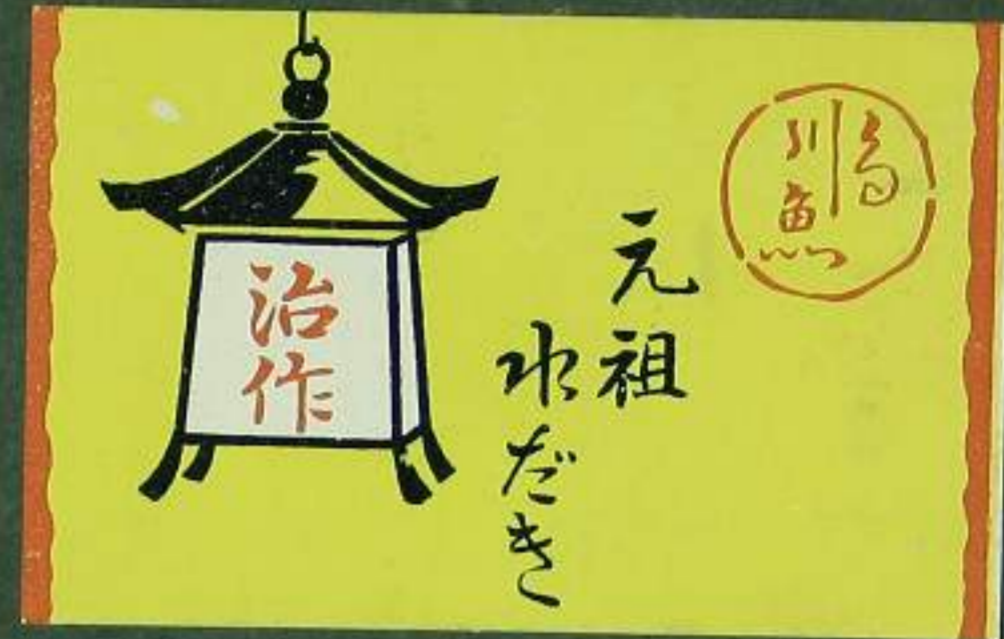 鳥
川魚
元祖
水だき
治作